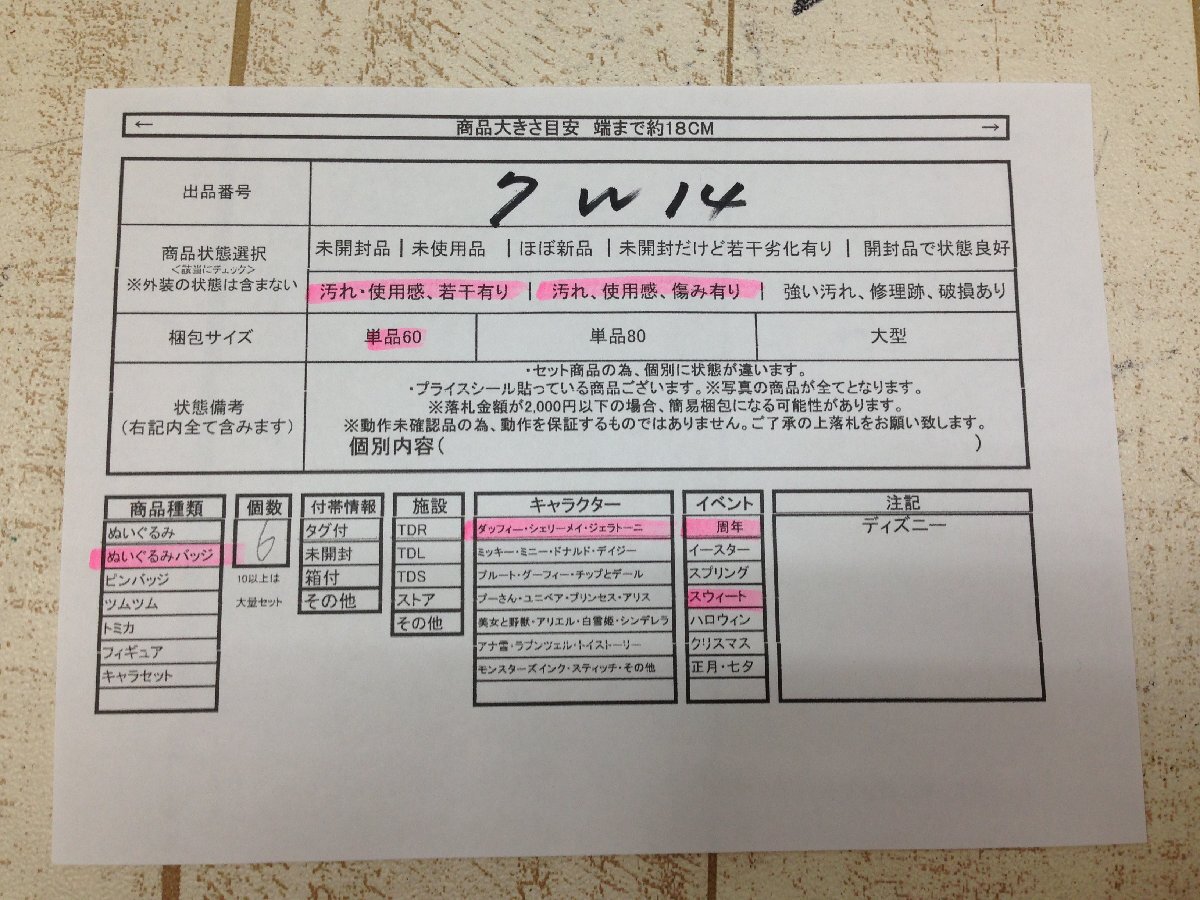 ← 商品大きさ目安 端まで約18CM →
出品番号 7 W 14
商品状態選択
<該当にチェック>
※外装の状態は含まない
未開封品 | 未使用品 | ほぼ新品 | 未開封だけど若干劣化有り | 開封品で状態良好
汚れ・使用感、若干有り | 汚れ、使用感、傷み有り | 強い汚れ、修理跡、破損あり
梱包サイズ 単品60 単品80 大型
状態備考
(右記内全て含みます)
・セット商品の為、個別に状態が違います。
・プライスシール貼っている商品ございます。※写真の商品が全てとなります。
※落札金額が2,000円以下の場合、簡易梱包になる可能性があります。
※動作未確認品の為、動作を保証するものではありません。ご了承の上落札をお願い致します。
個別内容( )
商品種類
ぬいぐるみ
ぬいぐるみバッジ
ピンバッジ
ツムツム
トミカ
フィギュア
キャラセット
個数
6
10以上は
大量セット
付帯情報
タグ付
未開封
箱付
その他
施設
TDR
TDL
TDS
ストア
その他
キャラクター
ダッフィー・シェリーメイ・ジェラトーニ
ミッキー・ミニー・ドナルド・デイジー
プルート・グーフィー・チップとデール
プーさん・ユニベア・プリンセス・アリス
美女と野獣・アリエル・白雪姫・シンデレラ
アナ雪・ラプンツェル・トイストーリー
モンスターズインク・スティッチ・その他
イベント
周年
イースター
スプリング
スウィート
ハロウィン
クリスマス
正月・七夕
注記
ディズニー